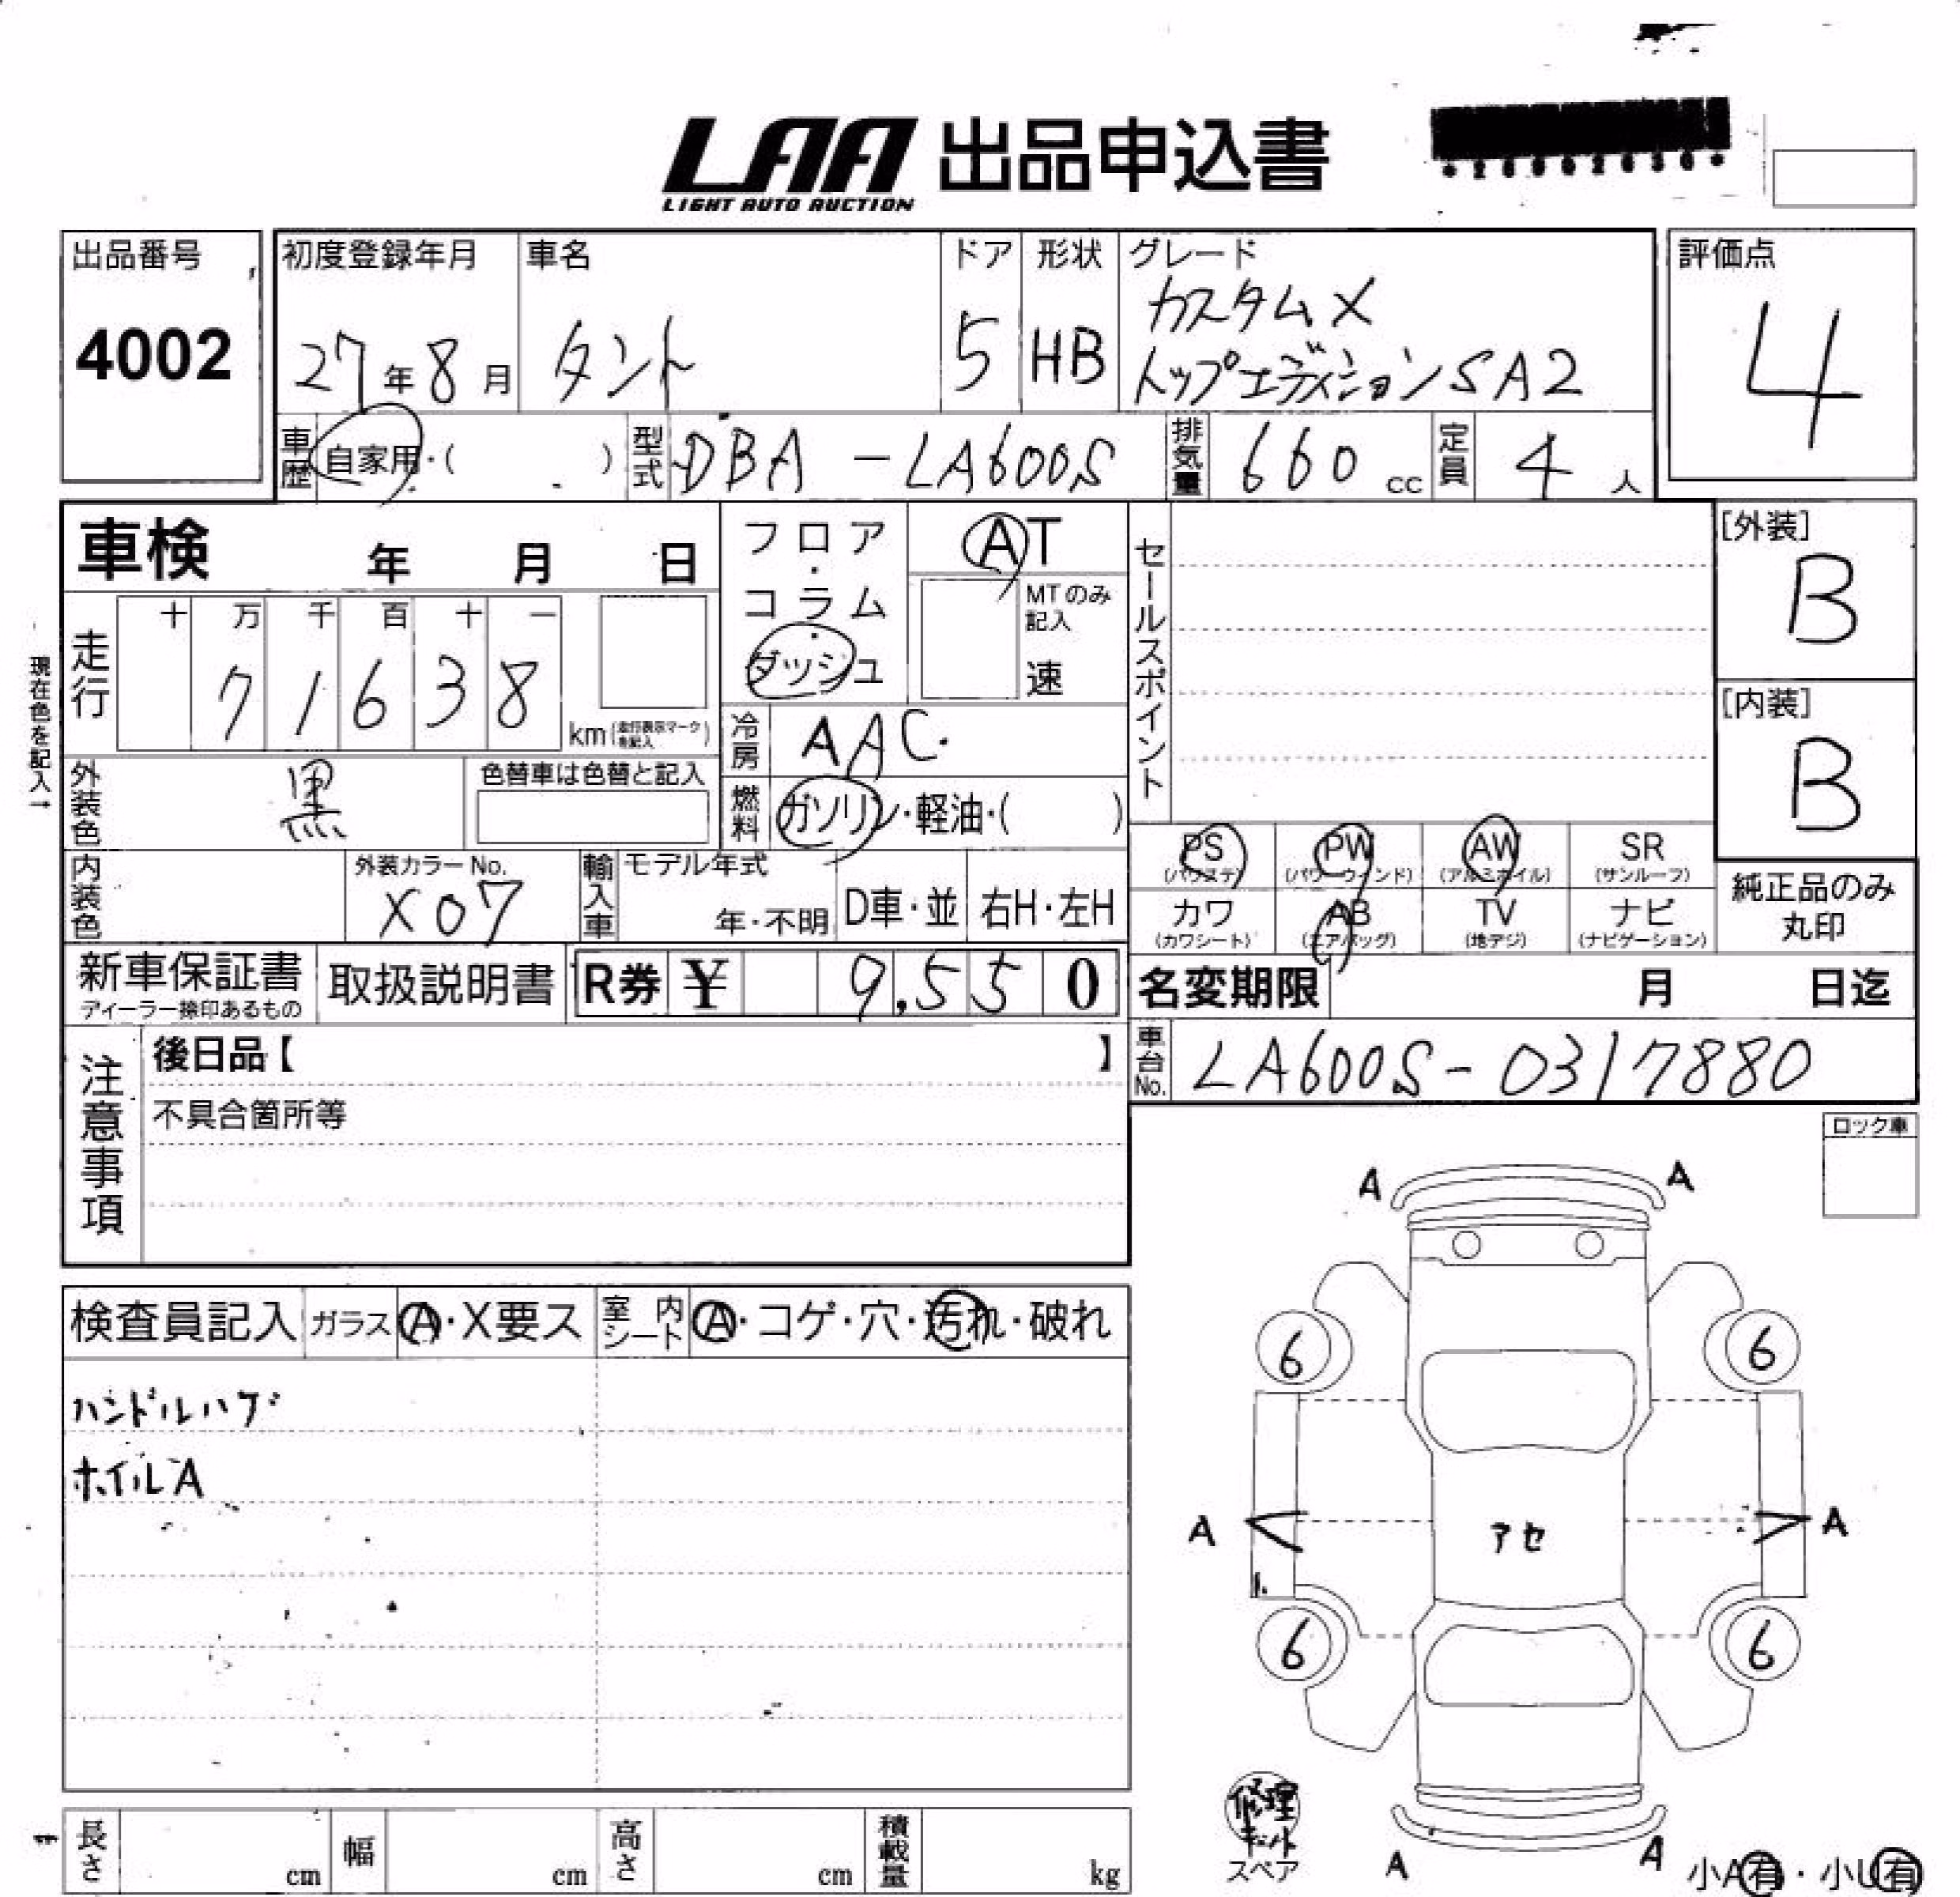 LAA 出品申込書
LIGHT AUTO AUCTION
出品番号
4002
初度登録年月
27年8月
車名
タント
ドア
5
形状
HB
グレード
カスタムX
トップエディションSA2
評価点
4
車歴
自家用・( )
型式
DBA-LA600S
排気量
660 cc
定員
4 人
車検 年 月 日
フロア
・
コラム
・
ダッシュ
AT
MTのみ
記入
速
セールスポイント
[外装]
B
[内装]
B
現在色を記入→
走行
十 万 千 百 十 一
7 1 6 3 8
km (走行表示マークを記入)
冷房
AAC
外装色
黒
色替車は色替と記入
燃料
ガソリン・軽油・( )
PS
(パワステ)
PW
(パワーウィンド)
AW
(アルミホイル)
SR
(サンルーフ)
カワ
(カワシート)
AB
(エアバッグ)
TV
(地デジ)
ナビ
(ナビゲーション)
純正品のみ
丸印
内装色
外装カラーNo.
X07
輸入車
モデル年式
年・不明
D車・並
右H・左H
新車保証書
ディーラー捺印あるもの
取扱説明書
R券 ¥ 9,550
名変期限 月 日迄
車台No.
LA600S-0317880
注意事項
後日品【 】
不具合箇所等
ロック車
検査員記入
ガラス
A・X要ス
室内シート
A・コゲ・穴・汚れ・破れ
ハンドルハゲ
ホイルA
A A
6 6
A アセ A
6 6
修理
キット
スペア
A A
小A有・小U有
長さ cm
幅 cm
高さ cm
積載量 kg